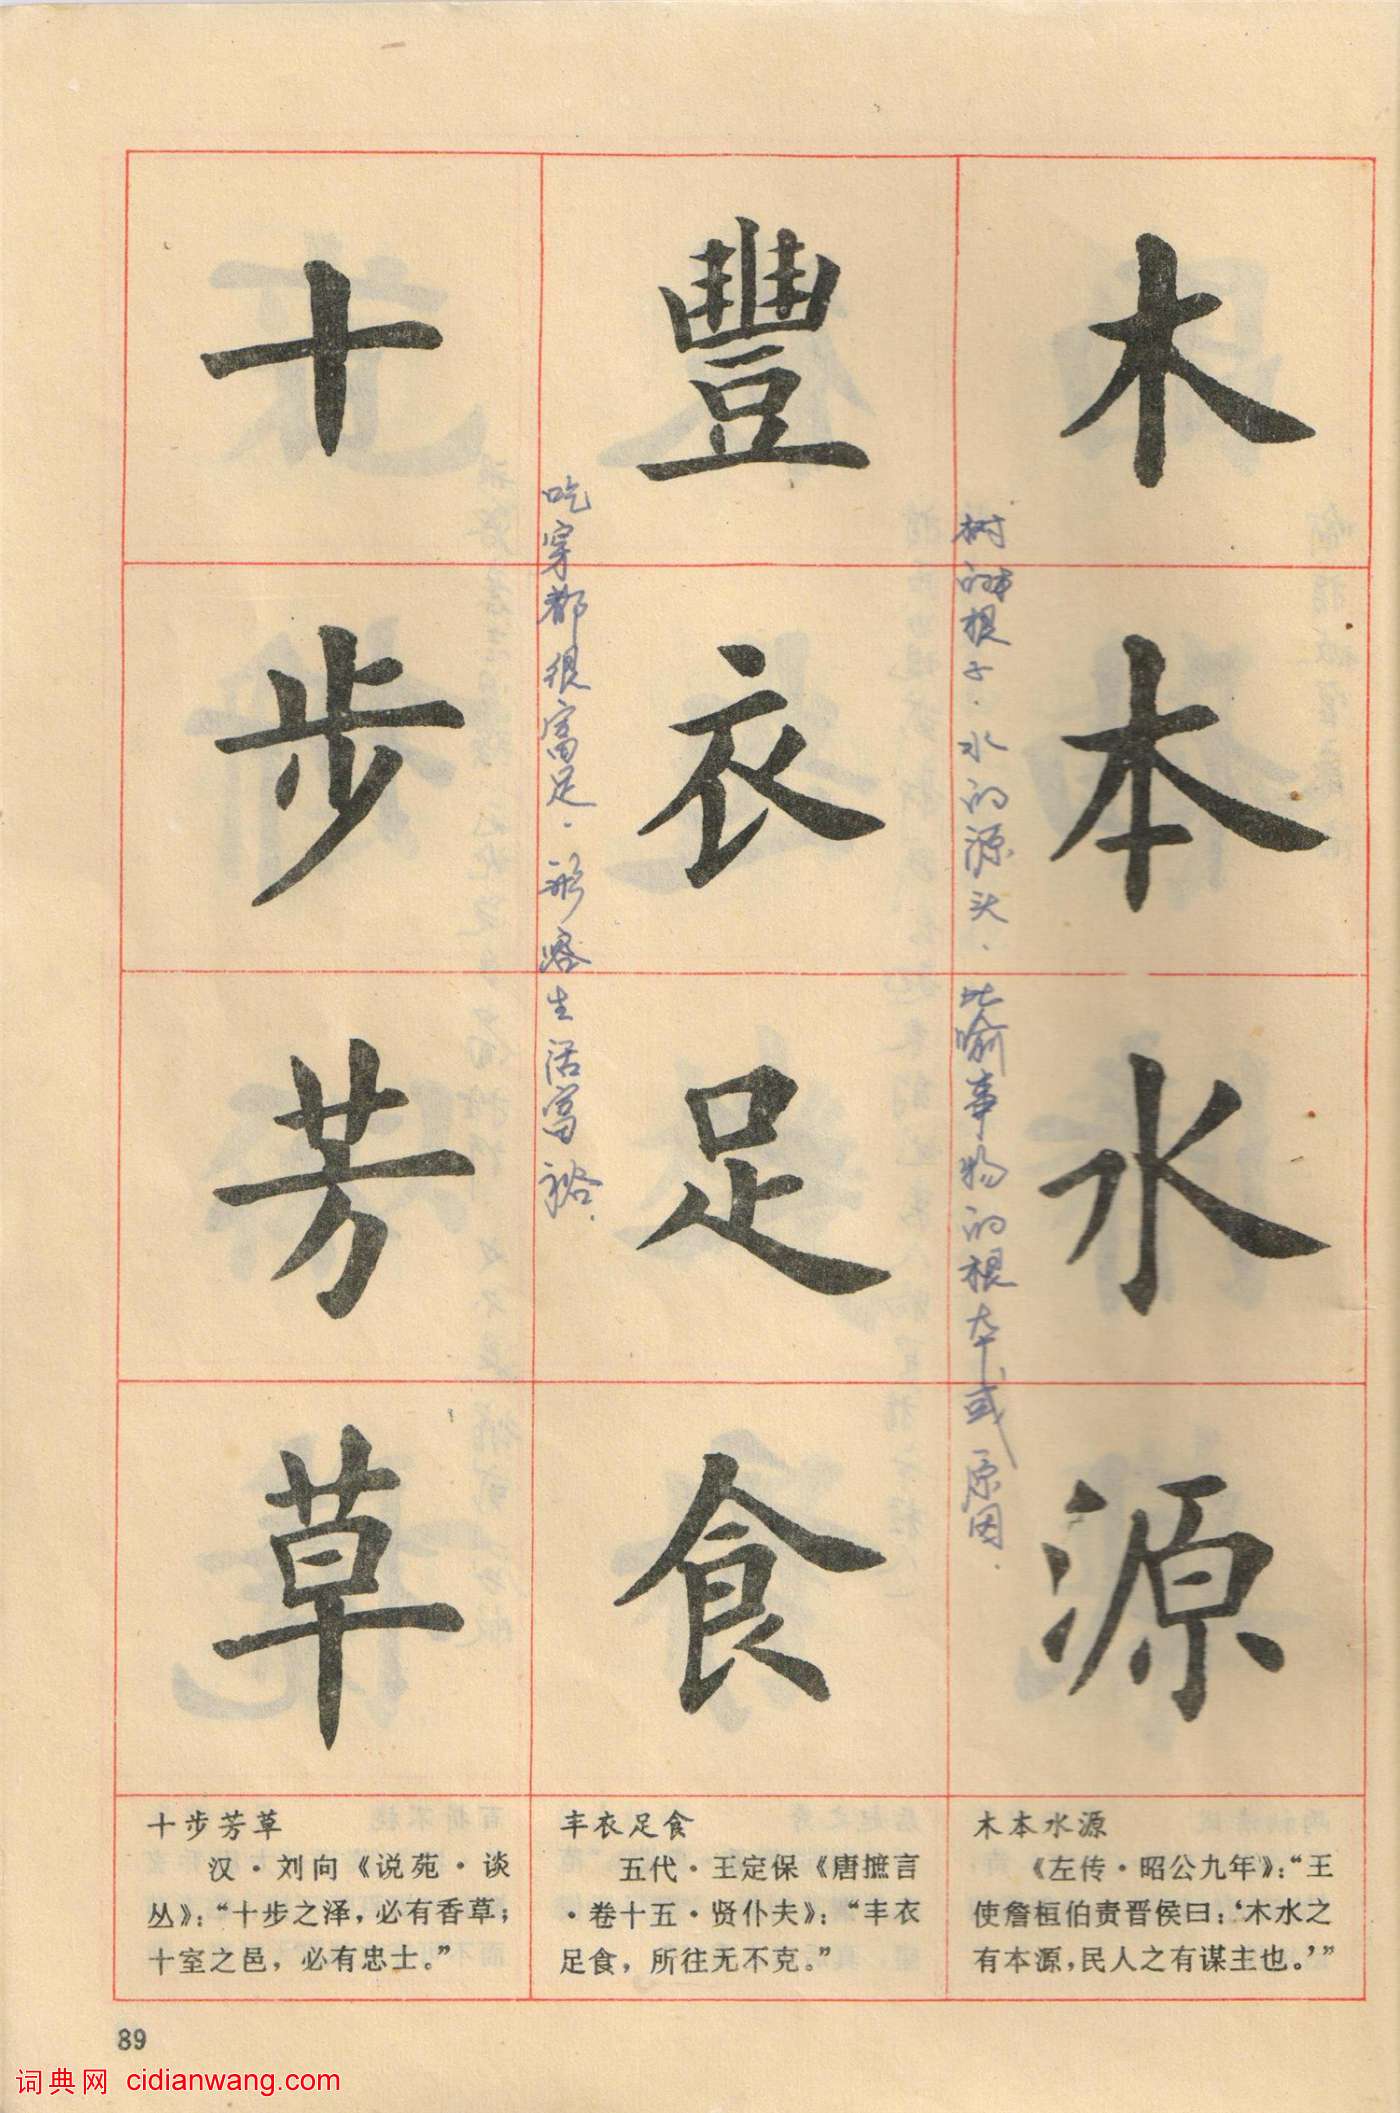 木本水源
树的根子．水的源头．比喻事物的根本或原因．
豐衣足食
吃穿都很富足．形容生活富裕．
十步芳草
木本水源
《左传·昭公九年》：“王
使詹桓伯责晋侯曰：‘木水之
有本源，民人之有谋主也。’”
丰衣足食
五代·王定保《唐摭言
·卷十五·贤仆夫》：“丰衣
足食，所往无不克。”
十步芳草
汉·刘向《说苑·谈
丛》：“十步之泽，必有香草；
十室之邑，必有忠士。”
89
词典网 cidianwang.com